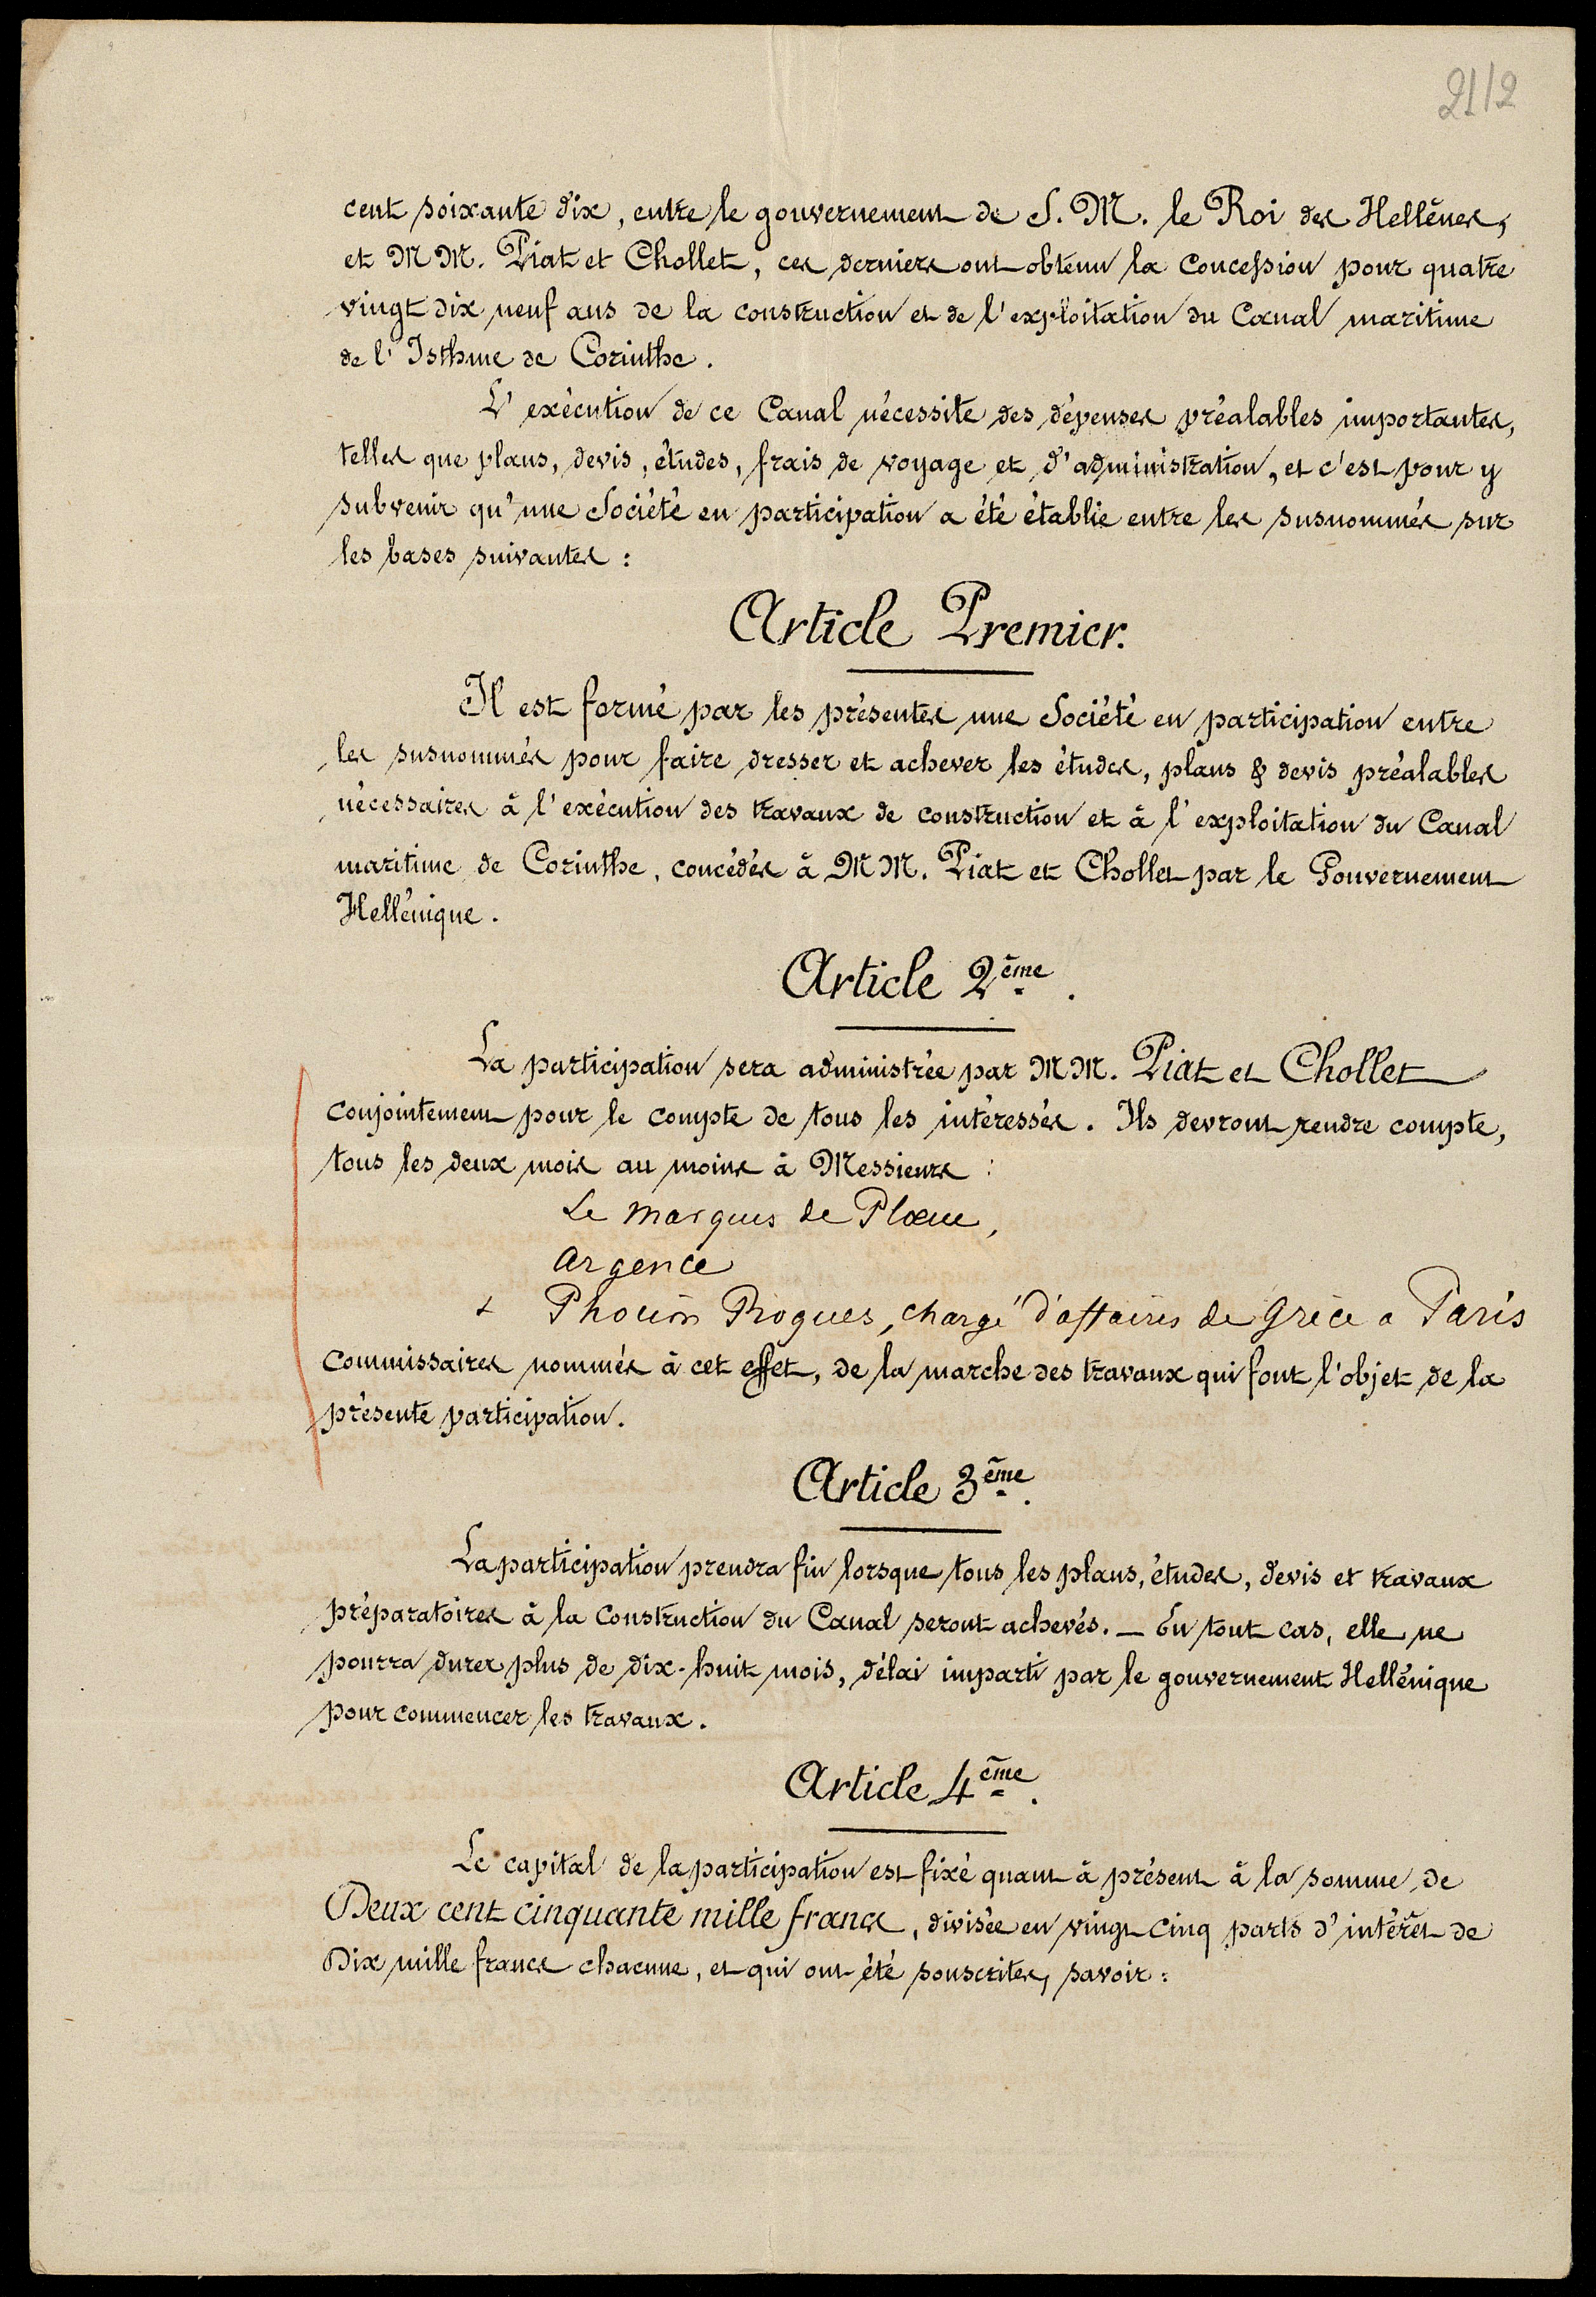 21/2
cent soixante dix, entre le gouvernement de S. M. le Roi des Hellènes,
et MM. Piat et Chollet, ces derniers ont obtenu la concession pour quatre
vingt dix neuf ans de la construction et de l'exploitation du Canal maritime
de l'Isthme de Corinthe.
L'exécution de ce Canal nécessite des dépenses préalables importantes,
telles que plans, devis, études, frais de voyage et d'administration, et c'est pour y
subvenir qu'une Société en participation a été établie entre les susnommés sur
les bases suivantes :
Article Premier.
Il est formé par les présentes une Société en participation entre
les susnommés pour faire dresser et achever les études, plans & devis préalables
nécessaires à l'exécution des travaux de construction et à l'exploitation du Canal
maritime de Corinthe, concédés à MM. Piat et Chollet par le Gouvernement
Hellénique.
Article 2ème.
La participation sera administrée par MM. Piat et Chollet
conjointement pour le compte de tous les intéressés. Ils devront rendre compte,
tous les deux mois au moins à Messieurs :
Le Marquis de Plœuc,
Argence
& Phocion Roques, chargé d'affaires de Grèce a Paris
Commissaires nommés à cet effet, de la marche des travaux qui font l'objet de la
présente participation.
Article 3ème.
La participation prendra fin lorsque tous les plans, études, devis et travaux
préparatoires à la Construction du Canal seront achevés. — En tout cas, elle ne
pourra durer plus de dix-huit mois, délai imparti par le gouvernement Hellénique
pour commencer les travaux.
Article 4ème.
Le capital de la participation est fixé quant à présent à la somme de
Deux cent cinquante mille francs, divisée en vingt cinq parts d'intérêt de
Dix mille francs chacune, et qui ont été souscrites, savoir :